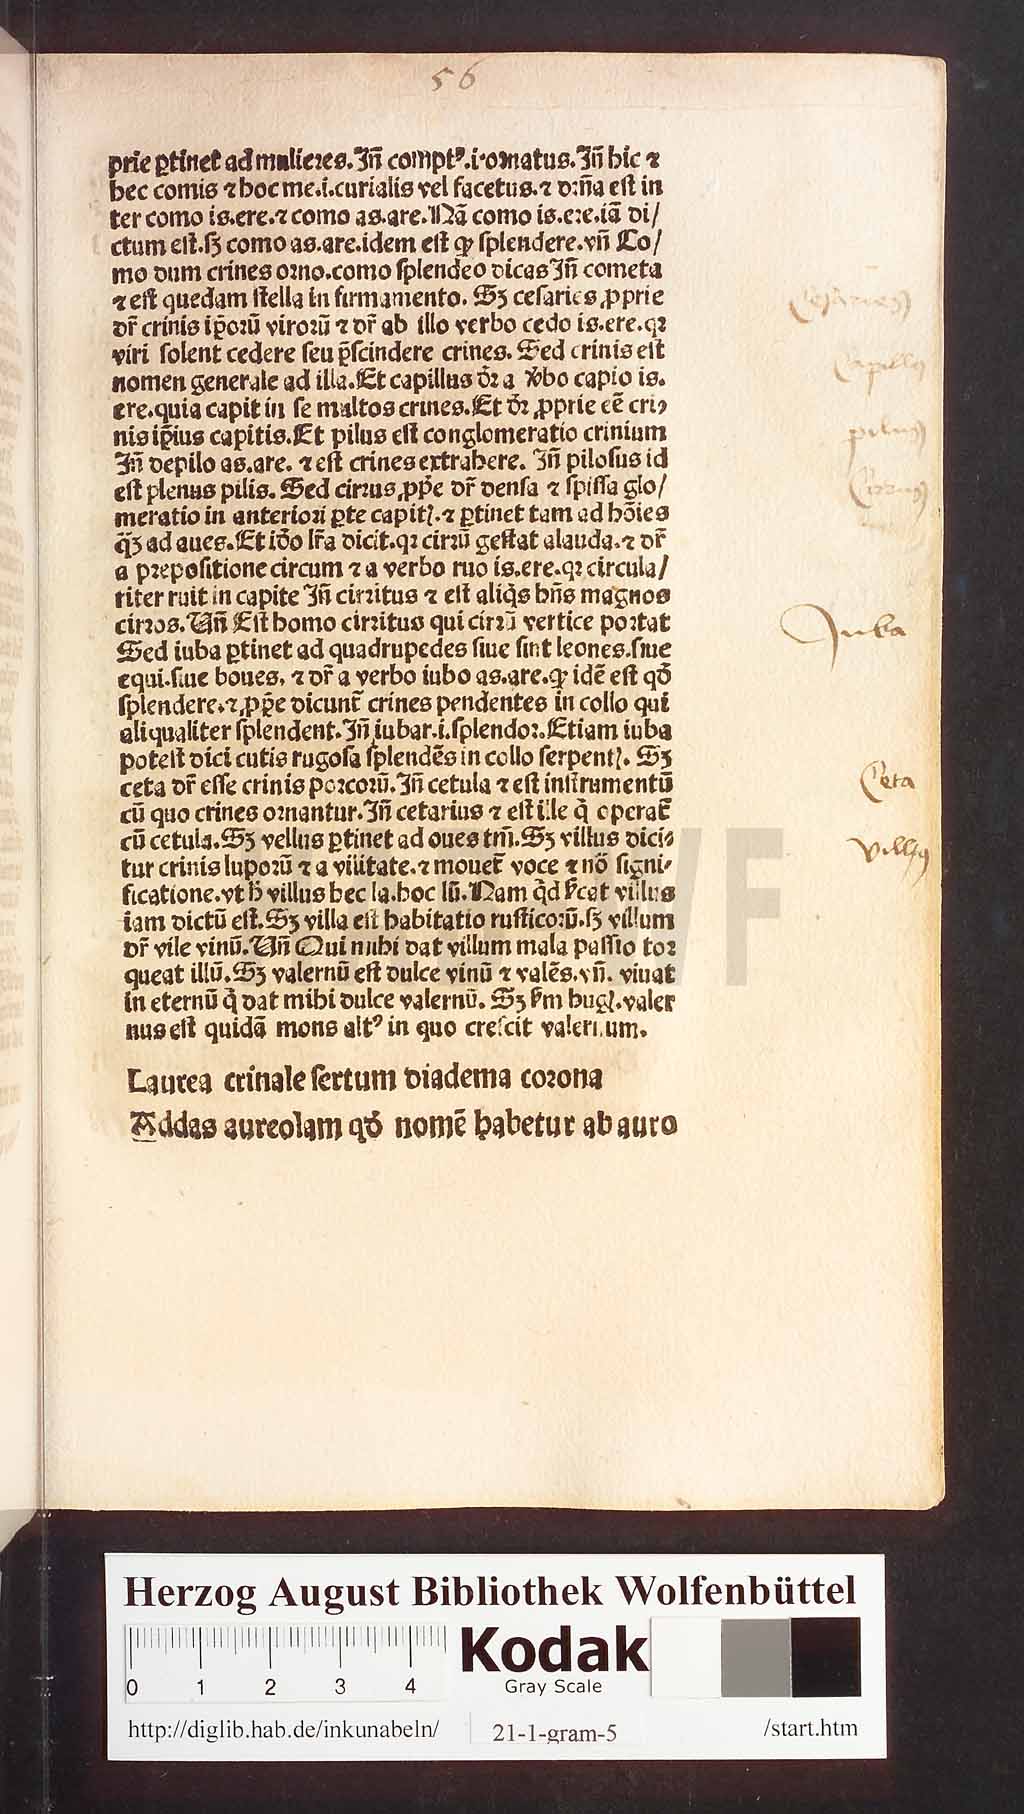 56
prie ꝑtinet ad mulieres. Jñ compt⁹.i.ornatus. Jñ hic ⁊
hec comis ⁊ hoc me.i.curialis vel facetus.⁊ dr̄ña est in
ter como is.ere.⁊ como as.are. Nā como is.ere.iā di/
ctum est.sꝫ como as.are.idem est qꝫ splendere.vñ Co/
mo dum crines orno.como splendeo dicas Jñ cometa
⁊ est quedam stella in firmamento. Sꝫ cesaries ꝓprie
dr̄ crinis ip̄orū virorū ⁊ dr̄ ab illo verbo cedo is.ere.qꝛ
viri solent cedere seu p̄scindere crines. Sed crinis est
nomen generale ad illa. Et capillus dr̄ a v̓bo capio is.
ere.quia capit in se multos crines. Et dr̄ ꝓprie eē cri⸗
nis ip̄ius capitis. Et pilus est conglomeratio crinium
Jñ depilo as.are. ⁊ est crines extrahere. Jñ pilosus id
est plenus pilis. Sed cirrus ꝓp̄e dr̄ densa ⁊ spissa glo/
meratio in anteriori ꝑte capitꝭ.⁊ ꝑtinet tam ad hōies
q̄ꝫ ad aues. Et iō lr̄a dicit.qꝛ cirrū gestat alauda.⁊ dr̄
a prepositione circum ⁊ a verbo ruo is.ere.qꝛ circula/
riter ruit in capite Jñ cirritus ⁊ est aliq̄s hn̄s magnos
cirros. Uñ Est homo cirritus qui cirrū vertice portat
Sed iuba ꝑtinet ad quadrupedes siue sint leones.siue
equi.siue boues, ⁊ dr̄ a verbo iubo as.are.qꝫ idē est qđ
splendere.⁊ ꝓp̄e dicunt̄ crines pendentes in collo qui
aliqualiter splendent. Jñ iubar.i.splendor. Etiam iuba
potest dici cutis rugosa splendēs in collo serpentꝭ. Sꝫ
ceta dr̄ esse crinis porcorū. Jñ cetula ⁊ est instrumentū
cū quo crines ornantur. Jñ cetarius ⁊ est ille q̄ operat̄
cū cetula. Sꝫ vellus ꝑtinet ad oues tm̄. Sꝫ villus dici⸗
tur crinis luporū ⁊ a vilitate.⁊ mouet̄ voce ⁊ nō signi⸗
ficatione.vt h̄ villus hec la.hoc lū. Nam q̄d s̄cat villus
iam dictū est. Sꝫ villa est habitatio rusticorū.sꝫ villum
dr̄ vile vinū. Uñ Qui mihi dat villum mala passio tor
queat illū. Sꝫ valernū est dulce vinū ⁊ valēs.vñ. viuat
in eternū q̄ dat mihi dulce valernū. Sꝫ s̄m hugꝭ.valer
nus est quidā mons alt⁹ in quo crescit valernum.
Laurea crinale sertum diadema corona
Addas aureolam qđ nomē habetur ab auro
Cesaries
Capillus
pilus
Cirrus
Juba
Ceta
Villus
Herzog August Bibliothek Wolfenbüttel
0 1 2 3 4
Kodak
Gray Scale
http://diglib.hab.de/inkunabeln/ 21-1-gram-5 /start.htm